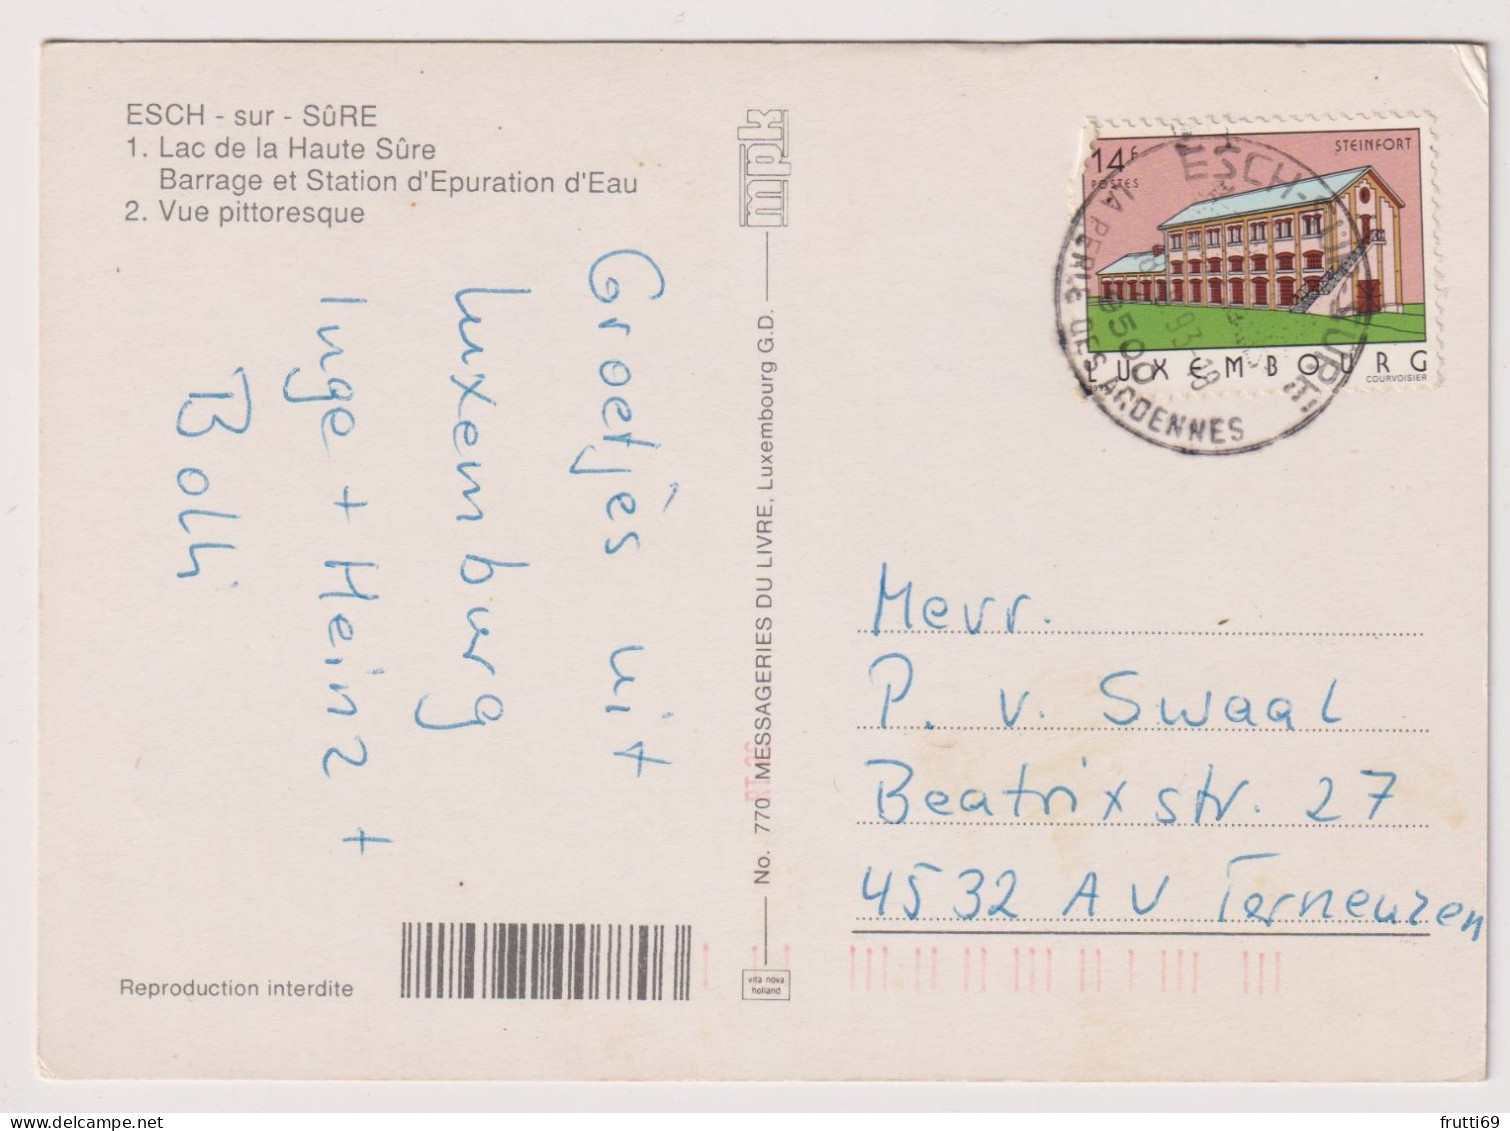 ESCH - sur - SûRE
1. Lac de la Haute Sûre
Barrage et Station d'Epuration d'Eau
2. Vue pittoresque
Groetjes uit
Luxemburg
Inge + Heinz +
Bolli
Reproduction interdite
mpk
No. 770 MESSAGERIES DU LIVRE, Luxembourg G.D.
vita nova
holland
14F
POSTES
STEINFORT
LUXEMBOURG
COURVOISIER
ESCH-SUR-SURE
LA PERLE DES ARDENNES
93-18
Mevr.
P. v. Swaal
Beatrixstr. 27
4532 AV Terneuzen
frutti69